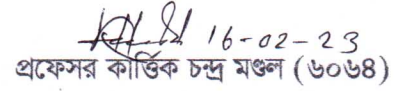 16-02-23
প্রফেসর কার্ত্তিক চন্দ্র মণ্ডল (৬০৬৪)